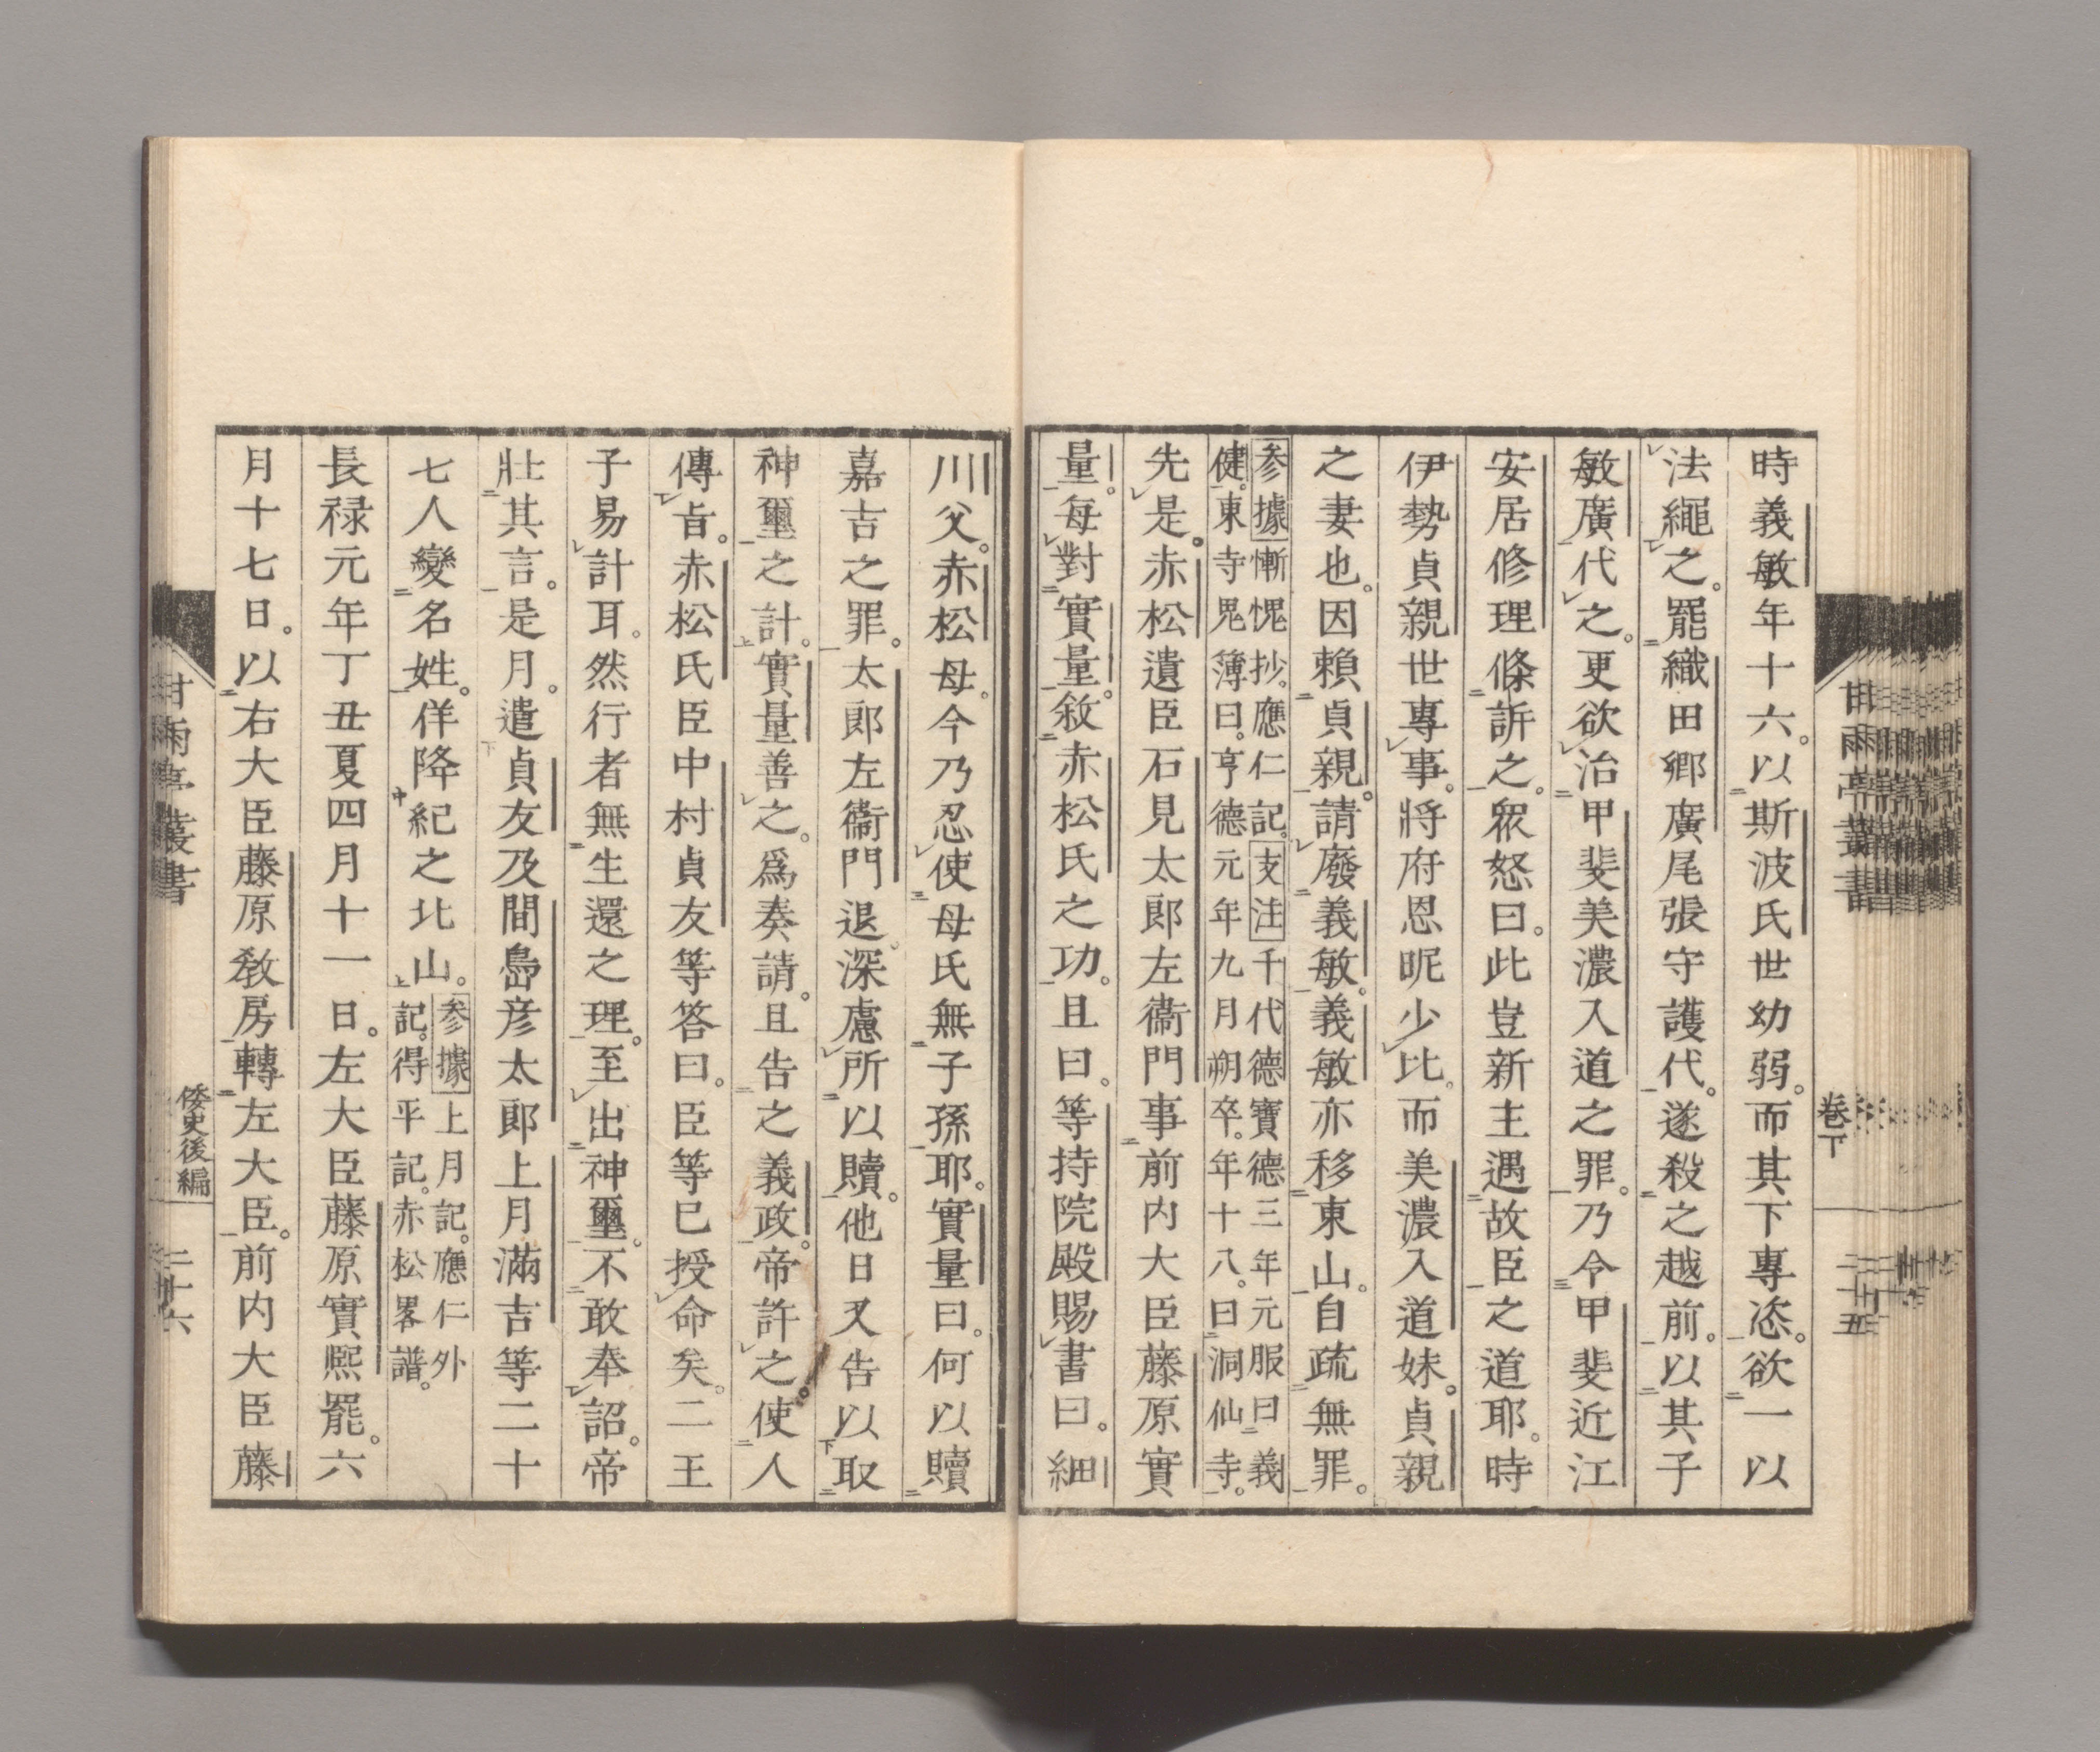 時義敏年十六。以斯波氏世幼弱。而其下專恣。欲一以
法繩之。罷織田郷廣尾張守護代。遂殺之越前。以其子
敏廣代之。更欲治甲斐美濃入道之罪。乃令甲斐近江
安居修理條訴之。衆怒曰。此豈新主遇故臣之道耶。時
伊勢貞親世專事。將府恩昵少比。而美濃入道妹。貞親
之妻也。因賴貞親。請廢義敏。義敏亦移東山。自疏無罪。
参據慚愧抄。應仁記。支注千代德寶德三年元服曰義
健。東寺鬼簿曰。亨德元年九月朔卒。年十八。曰洞仙寺。
先是。赤松遺臣石見太郎左衞門事前内大臣藤原實
量。每對實量。敘赤松氏之功。且曰。等持院殿賜書曰。細
川父。赤松母。今乃忍使母氏無子孫耶。實量曰。何以贖
嘉吉之罪。太郎左衞門退。深慮所以贖。他日又告以取
神璽之計。實量善之。爲奏請。且告之義政。帝許之。使人
傳旨。赤松氏臣中村貞友等答曰。臣等已授命矣。二王
子易計耳。然行者無生還之理。至出神璽。不敢奉詔。帝
壯其言。是月。遣貞友及間嶋彦太郎上月滿吉等二十
七人變名姓。佯降紀之北山。参據上月記。應仁外
記。得平記。赤松畧譜。
長禄元年丁丑夏四月十一日。左大臣藤原實熙罷。六
月十七日。以右大臣藤原教房轉左大臣。前内大臣藤
甘雨亭叢書
卷下
二十五
甘雨亭叢書
倭史後編
二十六